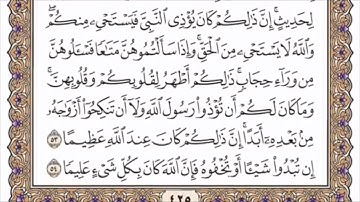 لِحَدِيثٍ ۚ إِنَّ ذَٰلِكُمْ كَانَ يُؤْذِى ٱلنَّبِىَّ فَيَسْتَحْىِۦ مِنكُمْ ۖ
وَٱللَّهُ لَا يَسْتَحْىِۦ مِنَ ٱلْحَقِّ ۚ وَإِذَا سَأَلْتُمُوهُنَّ مَتَـٰعًا فَسْـَٔلُوهُنَّ
مِن وَرَآءِ حِجَابٍ ۚ ذَٰلِكُمْ أَطْهَرُ لِقُلُوبِكُمْ وَقُلُوبِهِنَّ ۚ
وَمَا كَانَ لَكُمْ أَن تُؤْذُوا۟ رَسُولَ ٱللَّهِ وَلَآ أَن تَنكِحُوٓا۟ أَزْوَٰجَهُۥ
مِنۢ بَعْدِهِۦٓ أَبَدًا ۚ إِنَّ ذَٰلِكُمْ كَانَ عِندَ ٱللَّهِ عَظِيمًا ٥٣
إِن تُبْدُوا۟ شَيْـًٔا أَوْ تُخْفُوهُ فَإِنَّ ٱللَّهَ كَانَ بِكُلِّ شَىْءٍ عَلِيمًا ٥٤
٤٢٥